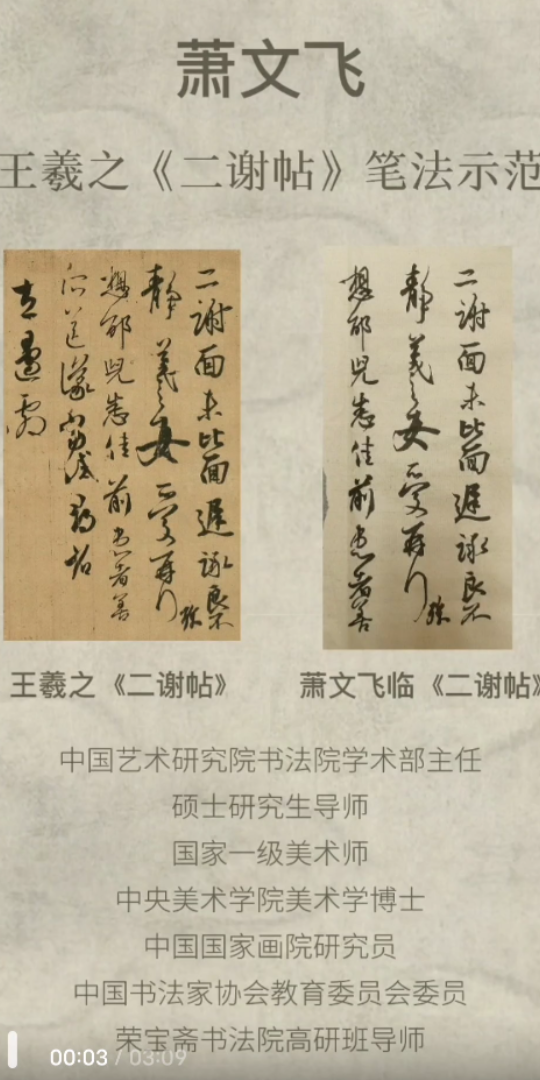 萧文飞
王羲之《二谢帖》笔法示范
二谢面未比面迟詠良不
静羲之女爱再行
想邰儿悉佳前患者善
二谢面未比面迟詠良不
静羲之女爱再行
想邰儿悉佳前患者善
王羲之《二谢帖》
萧文飞临《二谢帖》
中国艺术研究院书法院学术部主任
硕士研究生导师
国家一级美术师
中央美术学院美术学博士
中国国家画院研究员
中国书法家协会教育委员会委员
荣宝斋书法院高研班导师
00:03 / 03:09